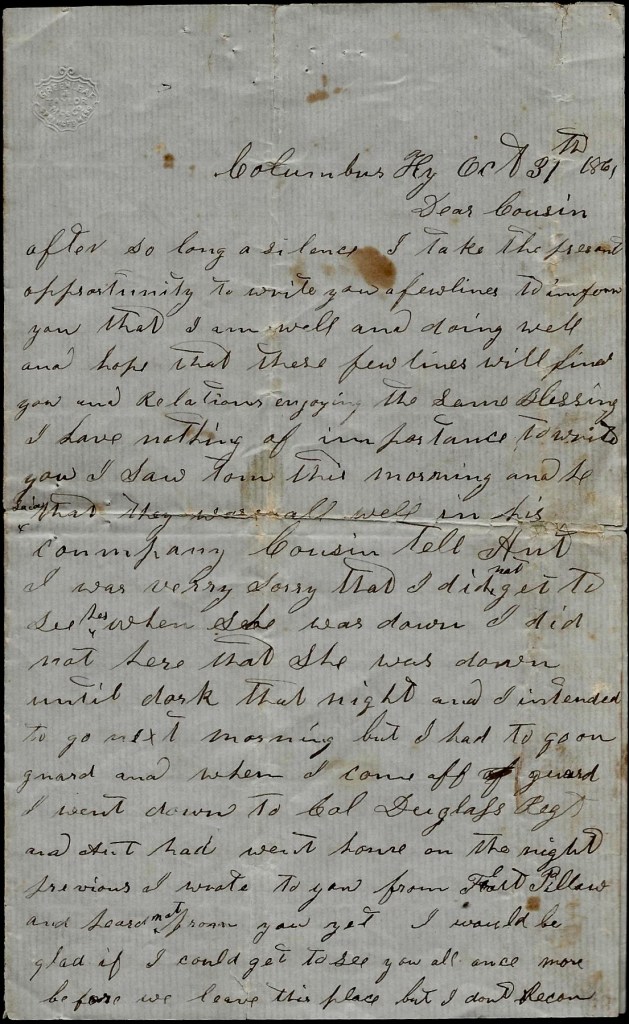 Columbus Ky Oct 31th 1861
Dear Cousin
after so long a silence I take the present
opportunity to write you a few lines to inform
you that I am well and doing well
and hope that these few lines will find
you and Relations enjoying the same Blessing
I have nothing of importance to write
you I saw tom this morning and he
saide that they was all well in his
counmpany Cousin tell Ant
I was verry sorry that I did not get to
see her when she was down I did
not here that She was down
until dark that night and I intended
to go next morning but I had to go on
guard and when I come off of guard
I went down to Col Duglass Regt
and Ant had went home on the night
previous I wrote to you from Fort Pillow
and heard not from you yet I would be
glad if I could get to see you all once more
before we leave this place but I dont Recon